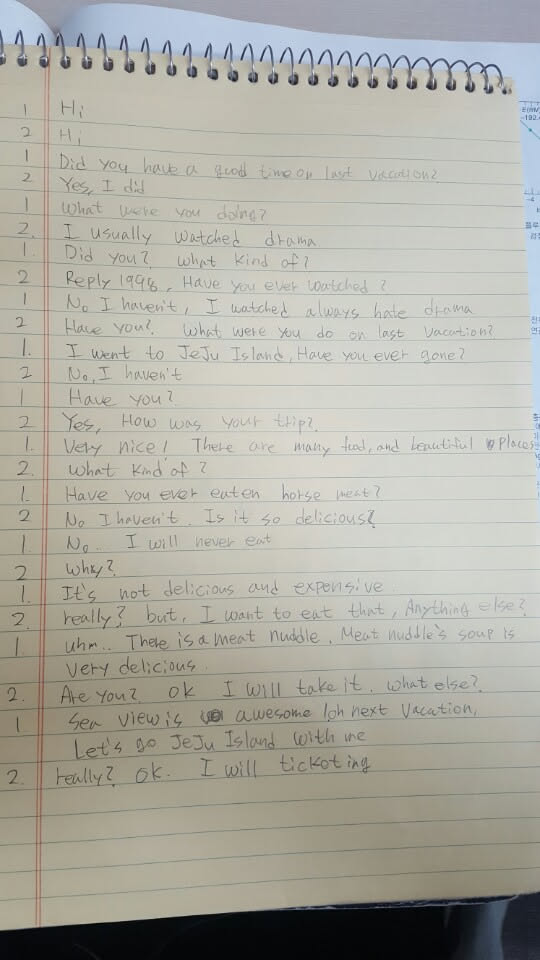 1 Hi
2 Hi
1 Did you have a good time on last vacation?
2 Yes, I did
1 What were you doing?
2. I usually watched drama
1. Did you? What kind of?
2 Reply 1998, Have you ever watched?
1 No I haven't, I watched always hate drama
2 Have you?. What were you do on last vacation?
1. I went to JeJu Island, Have you ever gone?
2 No, I haven't
1 Have you?
2 Yes, How was your trip?.
1. Very nice! There are many food, and beautiful places
2. What kind of?
1. Have you ever eaten horse meat?
2 No I haven't. Is it so delicious?
1. No.. I will never eat
2 Why?
1. It's not delicious and expensive
2. really? but, I want to eat that, Anything else?
1 uhm.. There is a meat nuddle. Meat nuddle's soup is
very delicious.
2. Are you? ok I will take it. What else?
1 Sea view is awesome! next vacation,
Let's go JeJu Island with me
2. really? ok. I will ticketing
E(mV)
-192.
-4